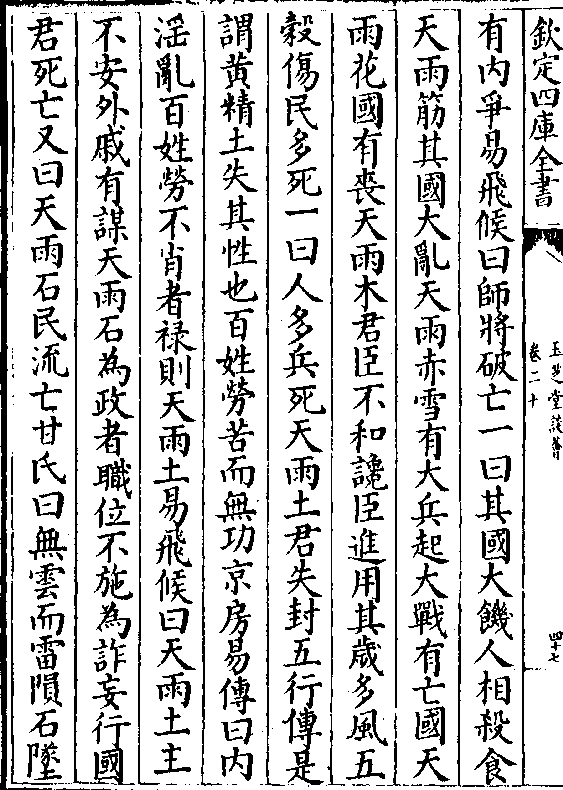 欽定四庫全書
玉芝堂談薈
卷二十
四十七
有内爭易飛候曰師將破亡一曰其國大饑人相殺食
天雨筋其國大亂天雨赤雪有大兵起大戰有亡國天
雨花國有喪天雨木君臣不和讒臣進用其歲多風五
穀傷民多死一曰人多兵死天雨土君失封五行傳是
謂黄精土失其性也百姓勞苦而無功京房易傳曰内
淫亂百姓勞不肖者禄則天雨土易飛候曰天雨土主
不安外戚有謀天雨石為政者職位不施為詐妄行國
君死亡又曰天雨石民流亡甘氏曰無雲而雷隕石墜